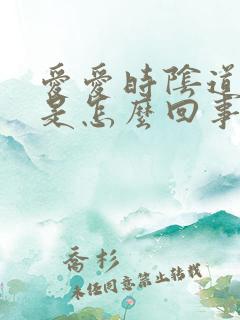 愛愛時陰道
是怎麼回事
喬杉
未經同意禁止轉載